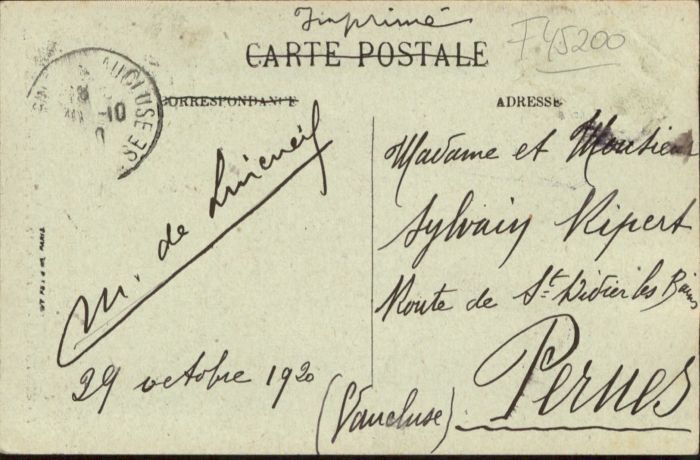 Imprimé
CARTE POSTALE
F45200
CORRESPONDANCE
ADRESSE
VAUCLUSE
-10
M. de
29 octobre 1920
Madame et Monsieur
Sylvain Ripert
Route de St Didier les Bains
Pernes
(Vaucluse)